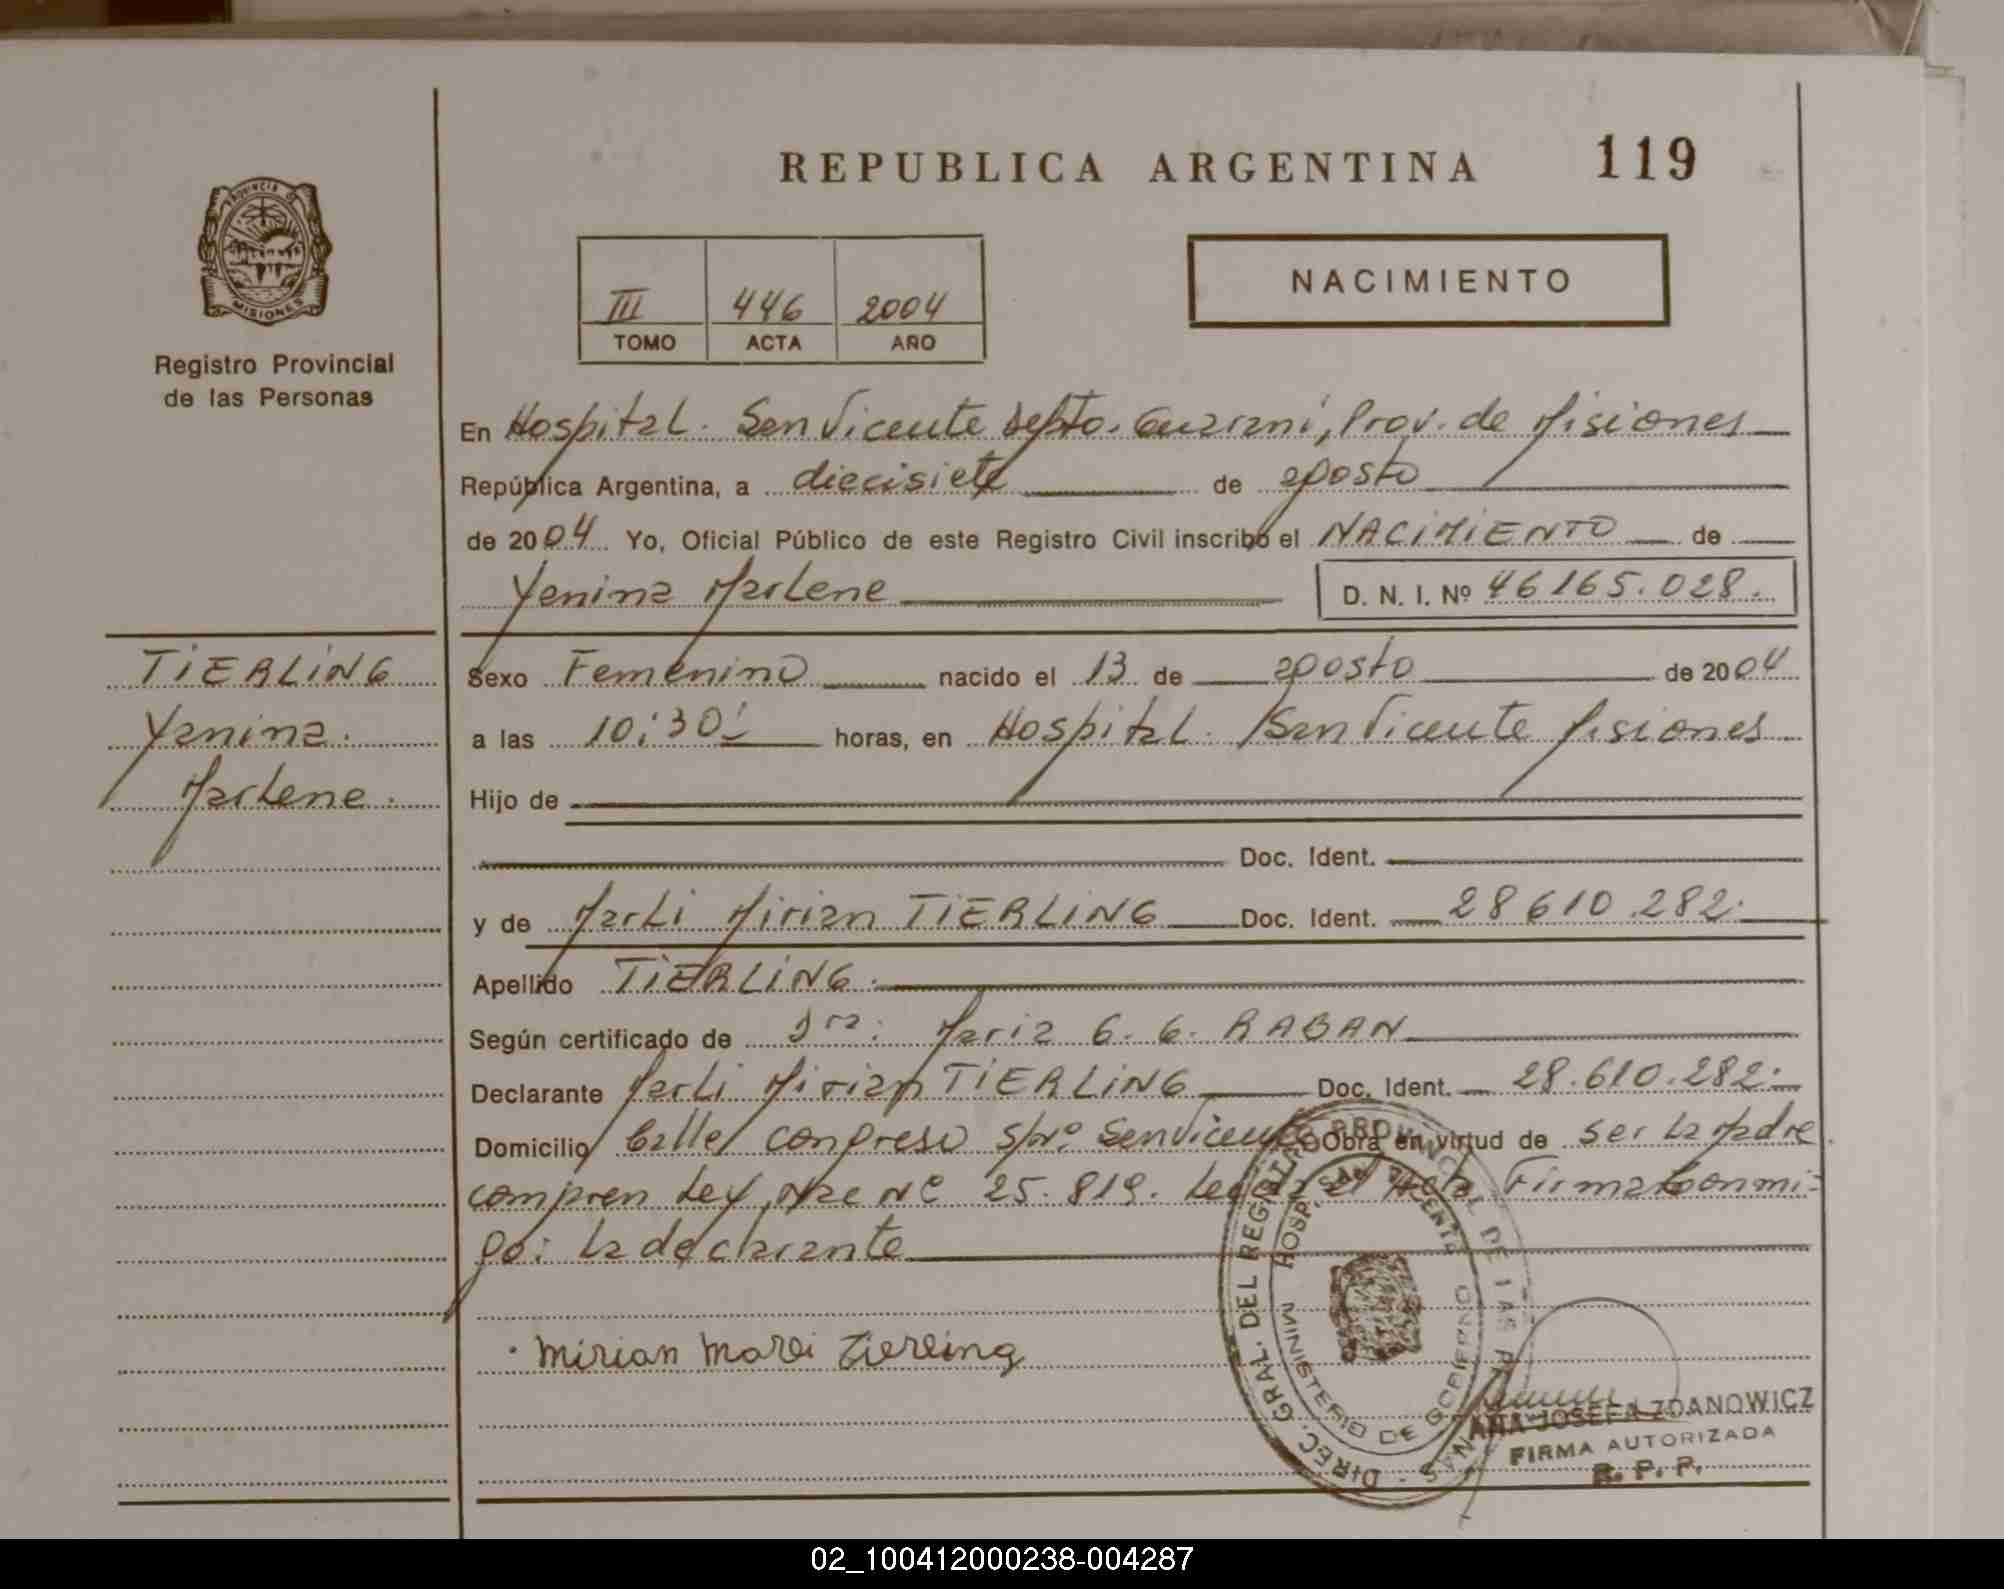 REPUBLICA ARGENTINA 119
PROVINCIA DE
MISIONES
Registro Provincial
de las Personas
III 446 2004
TOMO ACTA AÑO
NACIMIENTO
En Hospital. San Vicente Depto. Guaraní, Prov. de Misiones
República Argentina, a diecisiete de agosto
de 2004 Yo, Oficial Público de este Registro Civil inscribo el NACIMIENTO de
Yanina Marlene D. N. I. Nº 46165.028.
TIERLING
Yanina.
Marlene.
Sexo Femenino nacido el 13 de agosto de 2004
a las 10:30' horas, en Hospital. San Vicente Misiones
Hijo de
Doc. Ident.
y de Marli Mirian TIERLING Doc. Ident. 28610.282.
Apellido TIERLING.
Según certificado de Dra: Maria G. G. RABAN
Declarante Marli Mirian TIERLING Doc. Ident. 28.610.282.
Domicilio Calle Congreso S/Nº San Vicente Obra en virtud de ser la Madre
compren Ley Nº 25.819. Leída el Acta Firma Conmi-
go: la declarante
Mirian Marli Tierling
DIREC. GRAL. DEL REGISTRO PROVINCIAL DE LAS PERSONAS
HOSP. SAN VICENTE
MINISTERIO DE GOBIERNO
ANA JOSEFA ZDANOWICZ
FIRMA AUTORIZADA
R. P. P.
02_100412000238-004287